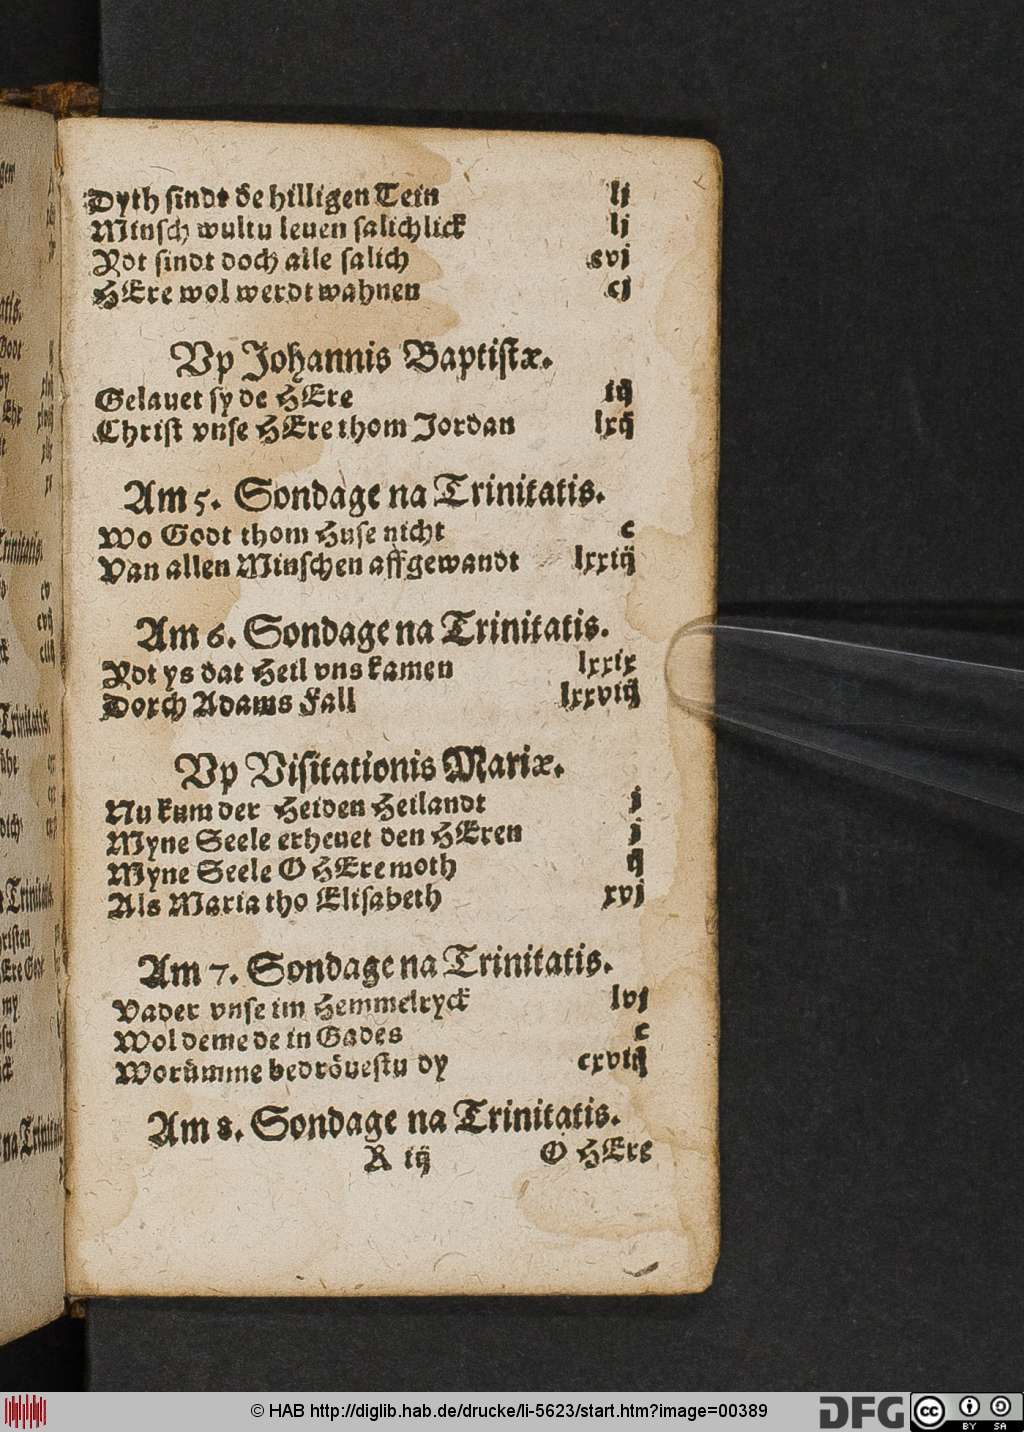 Dyth sindt de hilligen Tein lj
Minsch wultu leuen salichlick lj
Nðt sindt doch alle salich cvj
HEre wol werdt wahnen cj
Vp Johannis Baptistæ.
Gelauet sy de HEre iij
Christ vnse HEre thom Jordan lxij
Am 5. Sondage na Trinitatis.
Wo Godt thom Huse nicht c
Van allen Minschen affgewandt lxxiij
Am 6. Sondage na Trinitatis.
Jdt ys dat Heil vns kamen lxxix
Dorch Adams Fall lxxviij
Vp Visitationis Mariæ.
Nu kum der Heiden Heilandt j
Myne Seele erheuet den HEren j
Myne Seele O HEre moth ij
Als Maria tho Elisabeth xvj
Am 7. Sondage na Trinitatis.
Vader vnse im Hemmelryck lvj
Wol deme de in Gades c
Worümme bedröuestu dy cxviij
Am 8. Sondage na Trinitatis.
R iij O HEre
© HAB http://diglib.hab.de/drucke/li-5623/start.htm?image=00389
DFG
cc BY SA